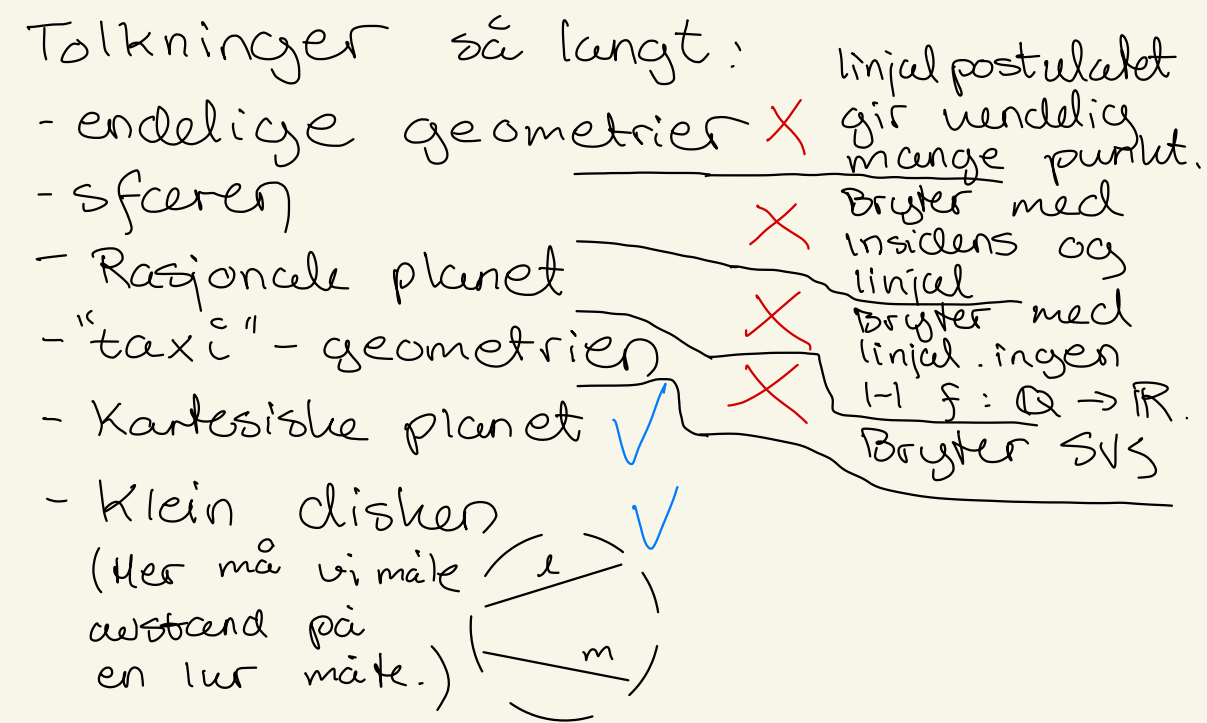 Tolkninger så langt:
- endelige geometrier
- sfæren
- Rasjonale planet
- "taxi" - geometrien
- Kartesiske planet
- Klein disken
(Her må vi måle
avstand på
en lur måte.)
l
m
linjalpostulatet
gir uendelig
mange punkt.
Bryter med
insidens og
linjal
Bryter med
linjal. ingen
1-1 f: ℚ → ℝ.
Bryter SVS